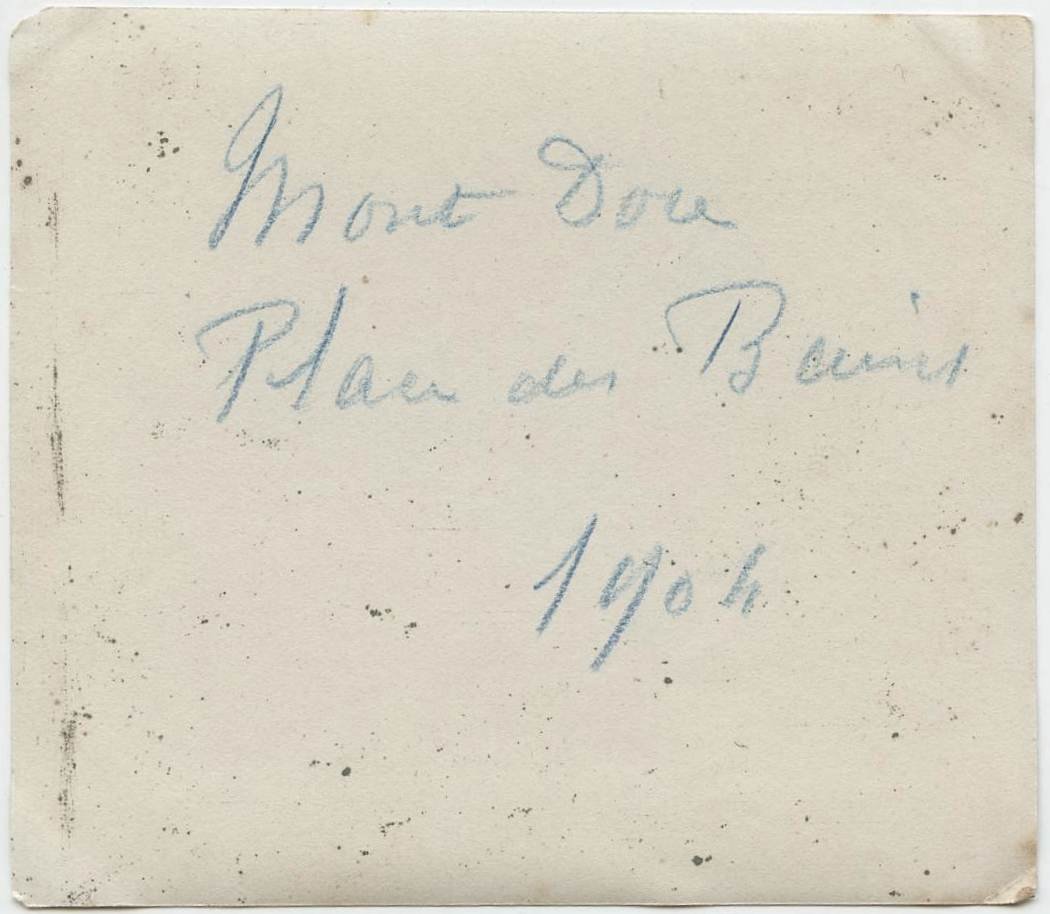 Mont Dore
Place des Bains
1904